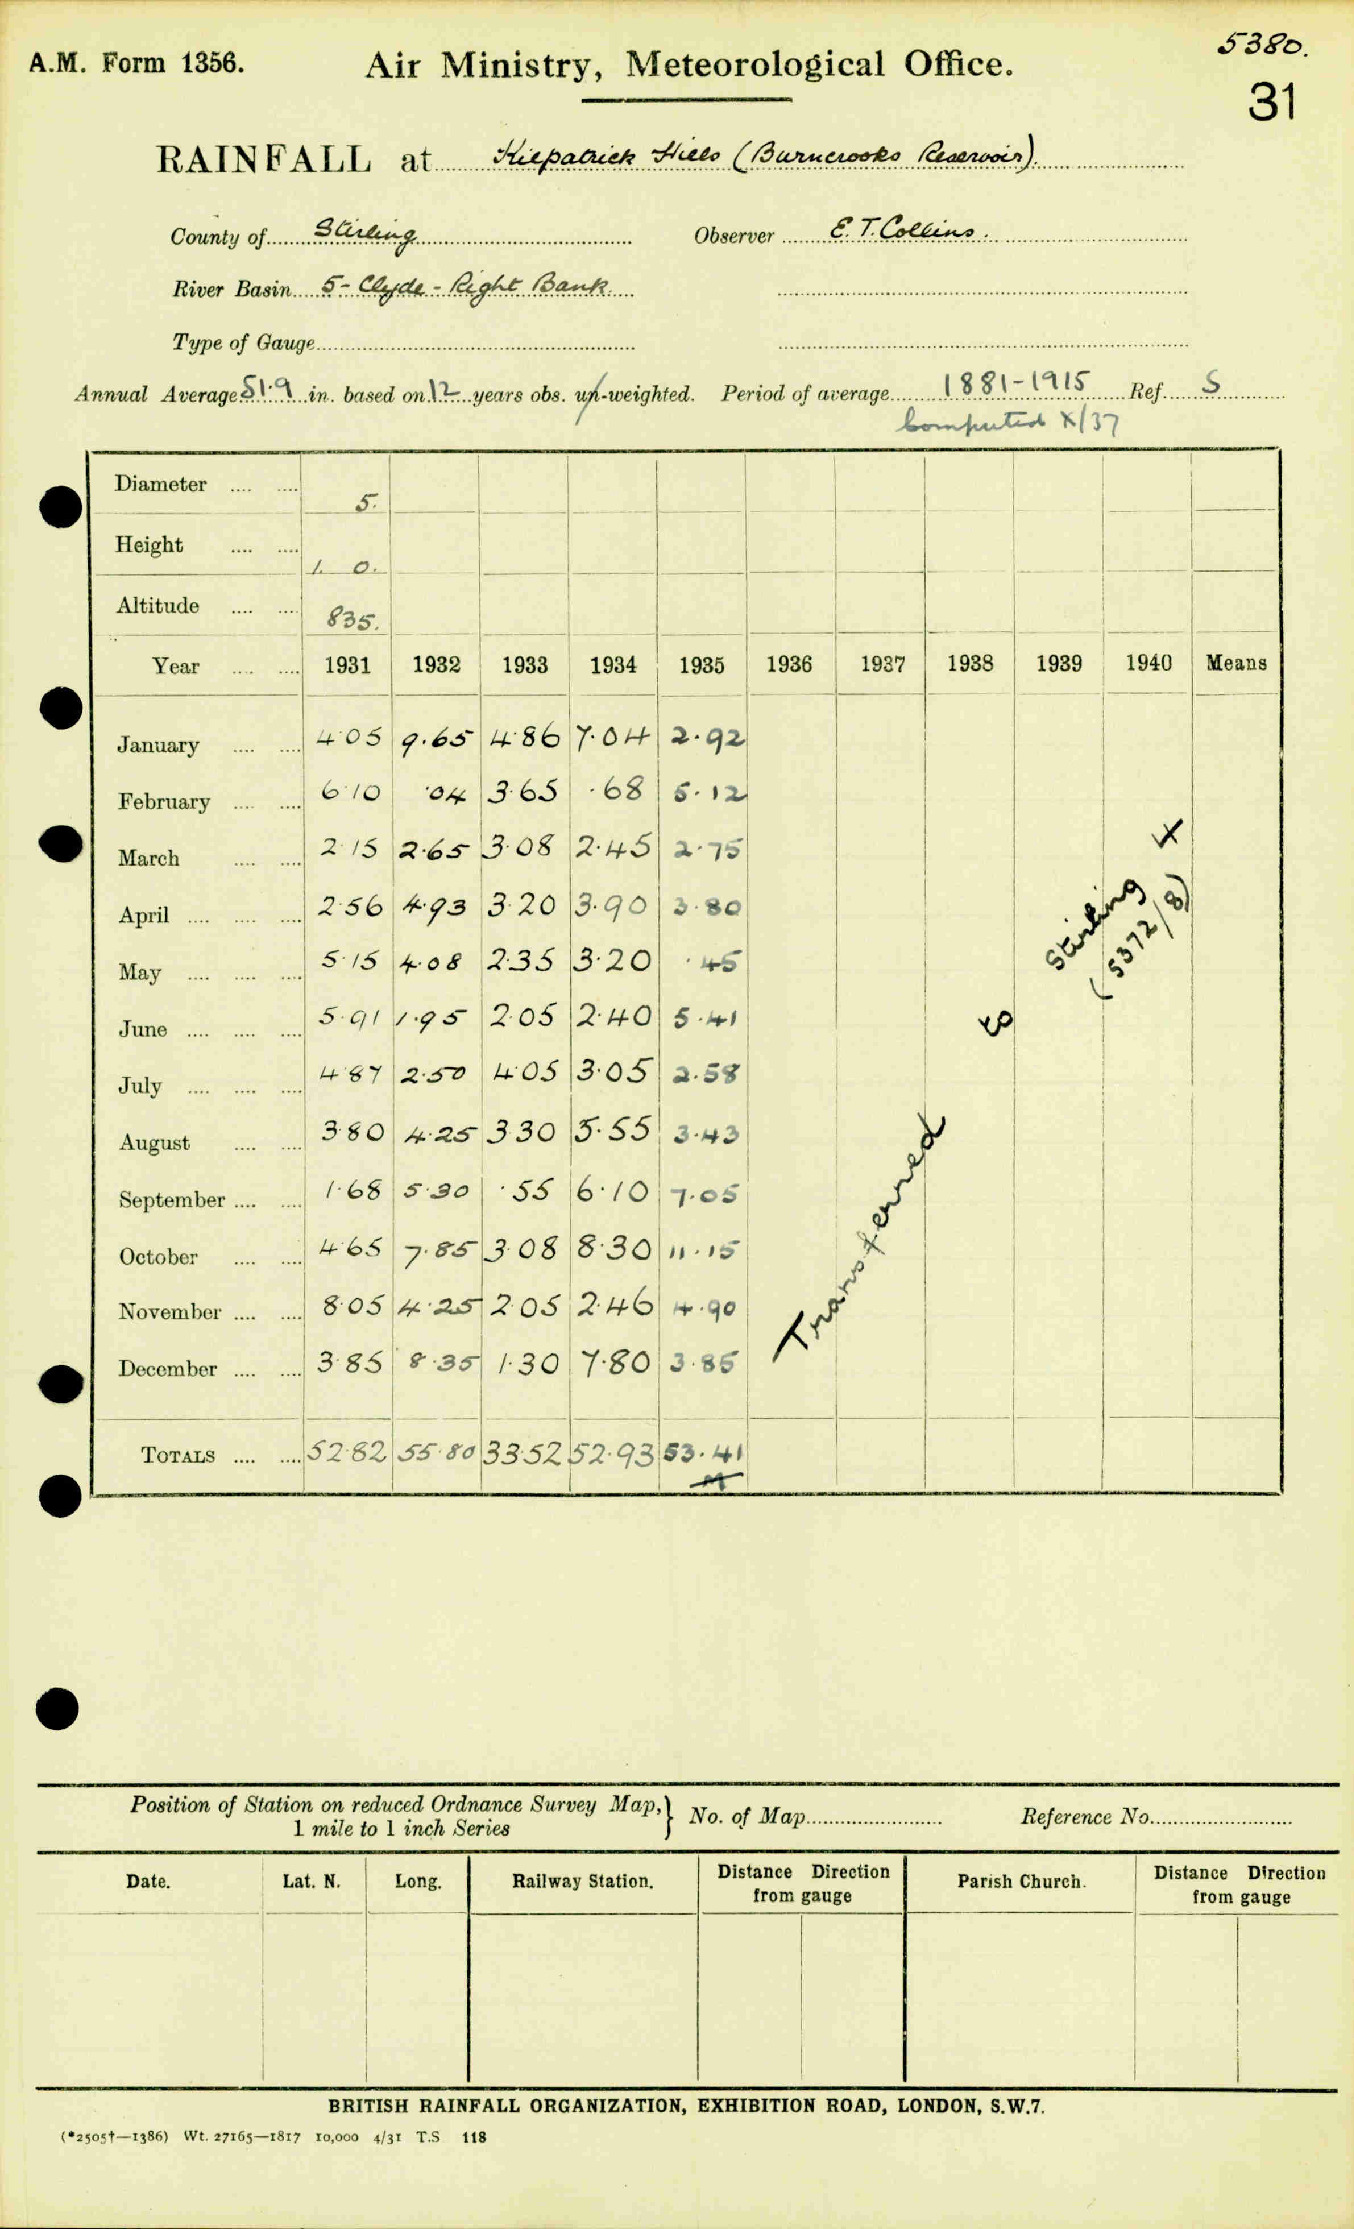 5380.
A.M. Form 1356. Air Ministry, Meteorological Office.
31
RAINFALL at Kilpatrick Hills (Burncrooks Reservoir).
County of Stirling Observer E. T. Collins.
River Basin 5 - Clyde - Right Bank
Type of Gauge
Annual Average 51.9 in. based on 12 years obs. un-weighted. Period of average 1881-1915 Ref. S
Computed X/37
Diameter .... .... 5.
Height .... .... 1. 0.
Altitude .... .... 835.
Year .... .... 1931 1932 1933 1934 1935 1936 1937 1938 1939 1940 Means
January .... .... 4.05 9.65 4.86 7.04 2.92
February .... .... 6.10 .04 3.65 .68 5.12
March .... .... 2.15 2.65 3.08 2.45 2.75
April .... .... .... 2.56 4.93 3.20 3.90 3.80
May .... .... .... 5.15 4.08 2.35 3.20 .45
June .... .... .... 5.91 1.95 2.05 2.40 5.41
July .... .... .... 4.87 2.50 4.05 3.05 2.58
August .... .... 3.80 4.25 3.30 5.55 3.43
September .... .... 1.68 5.30 .55 6.10 7.05
October .... .... 4.65 7.85 3.08 8.30 11.15
November .... .... 8.05 4.25 2.05 2.46 4.90
December .... .... 3.85 8.35 1.30 7.80 3.85
TOTALS .... .... 52.82 55.80 33.52 52.93 53.41
Transferred to Stirling 4
(5372/8)
Position of Station on reduced Ordnance Survey Map,} No. of Map Reference No.
1 mile to 1 inch Series
Date. Lat. N. Long. Railway Station. Distance Direction Parish Church. Distance Direction
from gauge from gauge
BRITISH RAINFALL ORGANIZATION, EXHIBITION ROAD, LONDON, S.W.7.
(*2505†—1386) Wt. 27165—1817 10,000 4/31 T.S 118